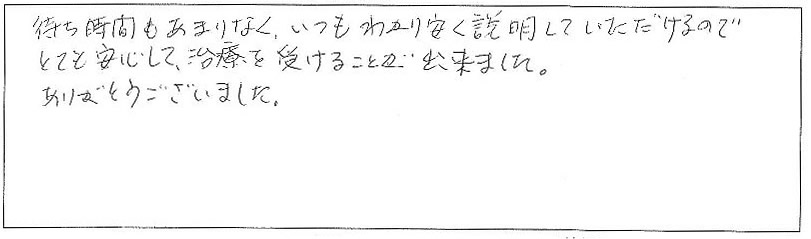 待ち時間もあまりなく、いつもわかり安く説明していただけるので
とても安心して、治療を受けることが出来ました。
ありがとうございました。